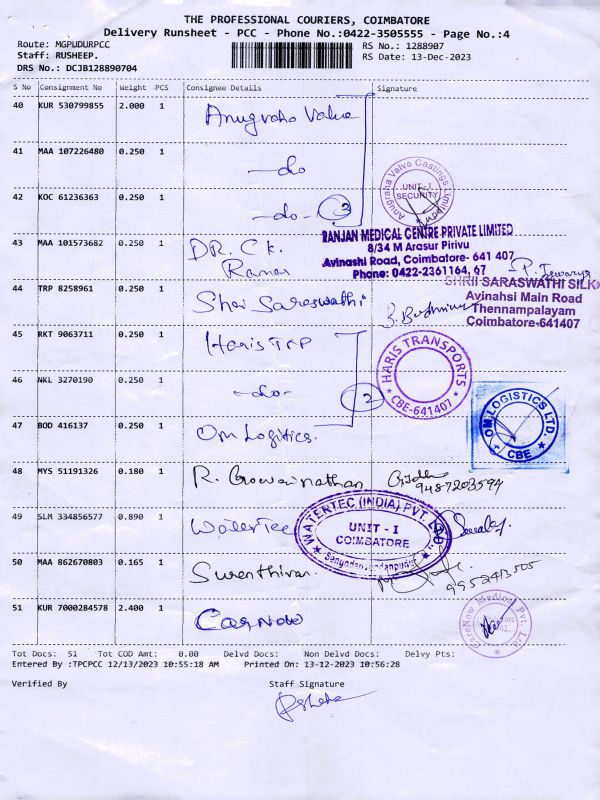 THE PROFESSIONAL COURIERS, COIMBATORE
Delivery Runsheet - PCC - Phone No.:0422-3505555 - Page No.:4
Route: MGPUDURPCC
RS No.: 1288907
Staff: RUSHEEP.
RS Date: 13-Dec-2023
DRS No.: DCJB128890704
S No Consignment No Weight PCS Consignee Details Signature
40 KUR 530799855 2.000 1 Anugraha Valve
41 MAA 107226480 0.250 1 -do
Anugraha Valve Castings Limited
UNIT - I
SECURITY
42 KOC 61236363 0.250 1 -do- 3
RANJAN MEDICAL CENTRE PRIVATE LIMITED
8/34 M Arasur Pirivu
Avinashi Road, Coimbatore- 641 407
Phone: 0422-2361164, 67
43 MAA 101573682 0.250 1 DR. C.K.
Raman
SHRII SARASWATHI SILK
Avinahsi Main Road
Thennampalayam
Coimbatore-641407
44 TRP 8258961 0.250 1 Shri Saraswathi
45 RKT 9063711 0.250 1 Haris TRP
HARIS TRANSPORTS
CBE-641407
46 NKL 3270190 0.250 1 -do- 2
OM LOGISTICS LTD.
CBE
47 BOD 416137 0.250 1 Om Logitics.
48 MYS 51191326 0.180 1 R. Gowrinathan
9487203594
WATERTEC (INDIA) PVT. LTD
UNIT - I
COIMBATORE
49 SLM 334856577 0.890 1 WaterTec
50 MAA 862670803 0.165 1 Surenthiran.
9952413505
51 KUR 7000284578 2.400 1 CarNow
CareNow Medical Pvt. Ltd
Tot Docs: 51 Tot COD Amt: 0.00 Delvd Docs: Non Delvd Docs: Delvy Pts:
Entered By :TPCPCC 12/13/2023 10:55:18 AM Printed On: 13-12-2023 10:56:28
Verified By Staff Signature